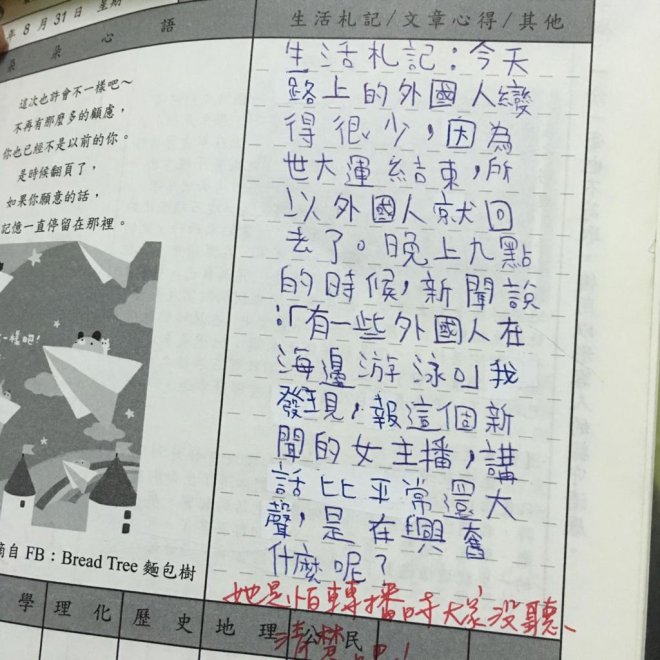 年 8 月 31 日 星期
朵 朵 心 語
生活札記/文章心得/其他
這次也許會不一樣吧～
不再有那麼多的顧慮，
你也已經不是以前的你。
是時候翻頁了，
如果你願意的話，
記憶一直停留在那裡。
一樣吧!
自 FB：Bread Tree 麵包樹
生活札記：今天
路上的外國人變
得很少，因為
世大運結束，所
以外國人就回
去了。晚上九點
的時候，新聞說
：「有一些外國人在
海邊游泳。」我
發現，報這個新
聞的女主播，講
話比平常還大
聲，是在興奮
什麼呢？
她是怕轉播時大家沒聽
清楚吧！
學 理 化 歷 史 地 理 公 民